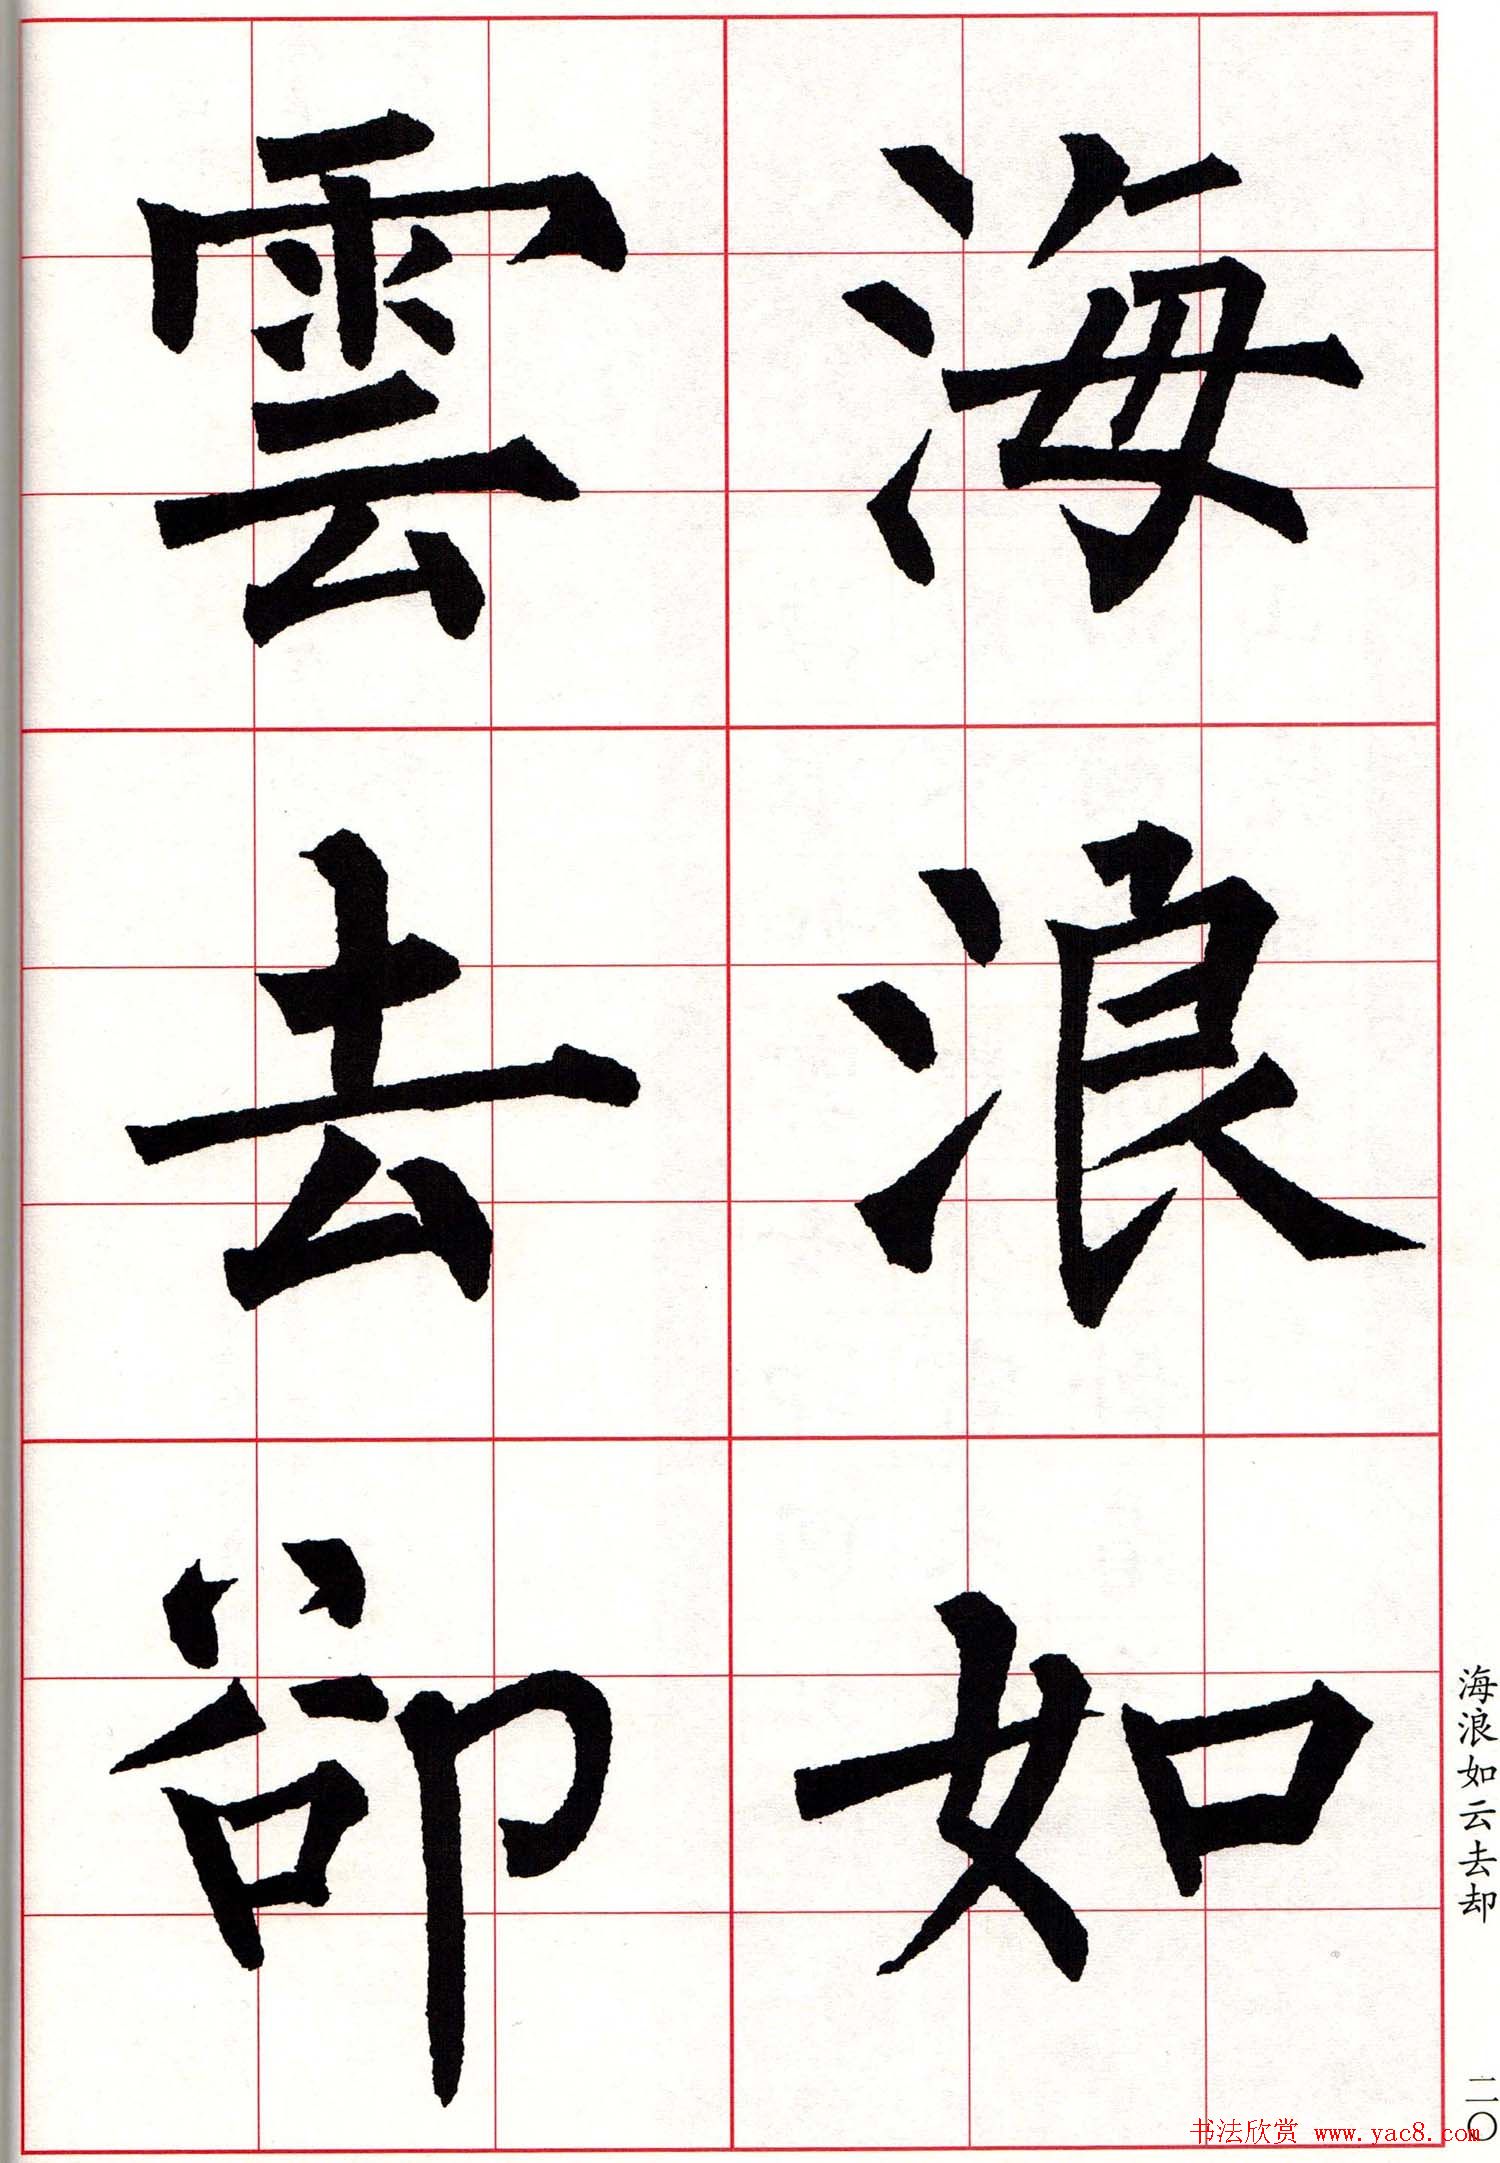 海浪如
雲去卻
海浪如云去却
二〇
书法欣赏 www.yac8.com